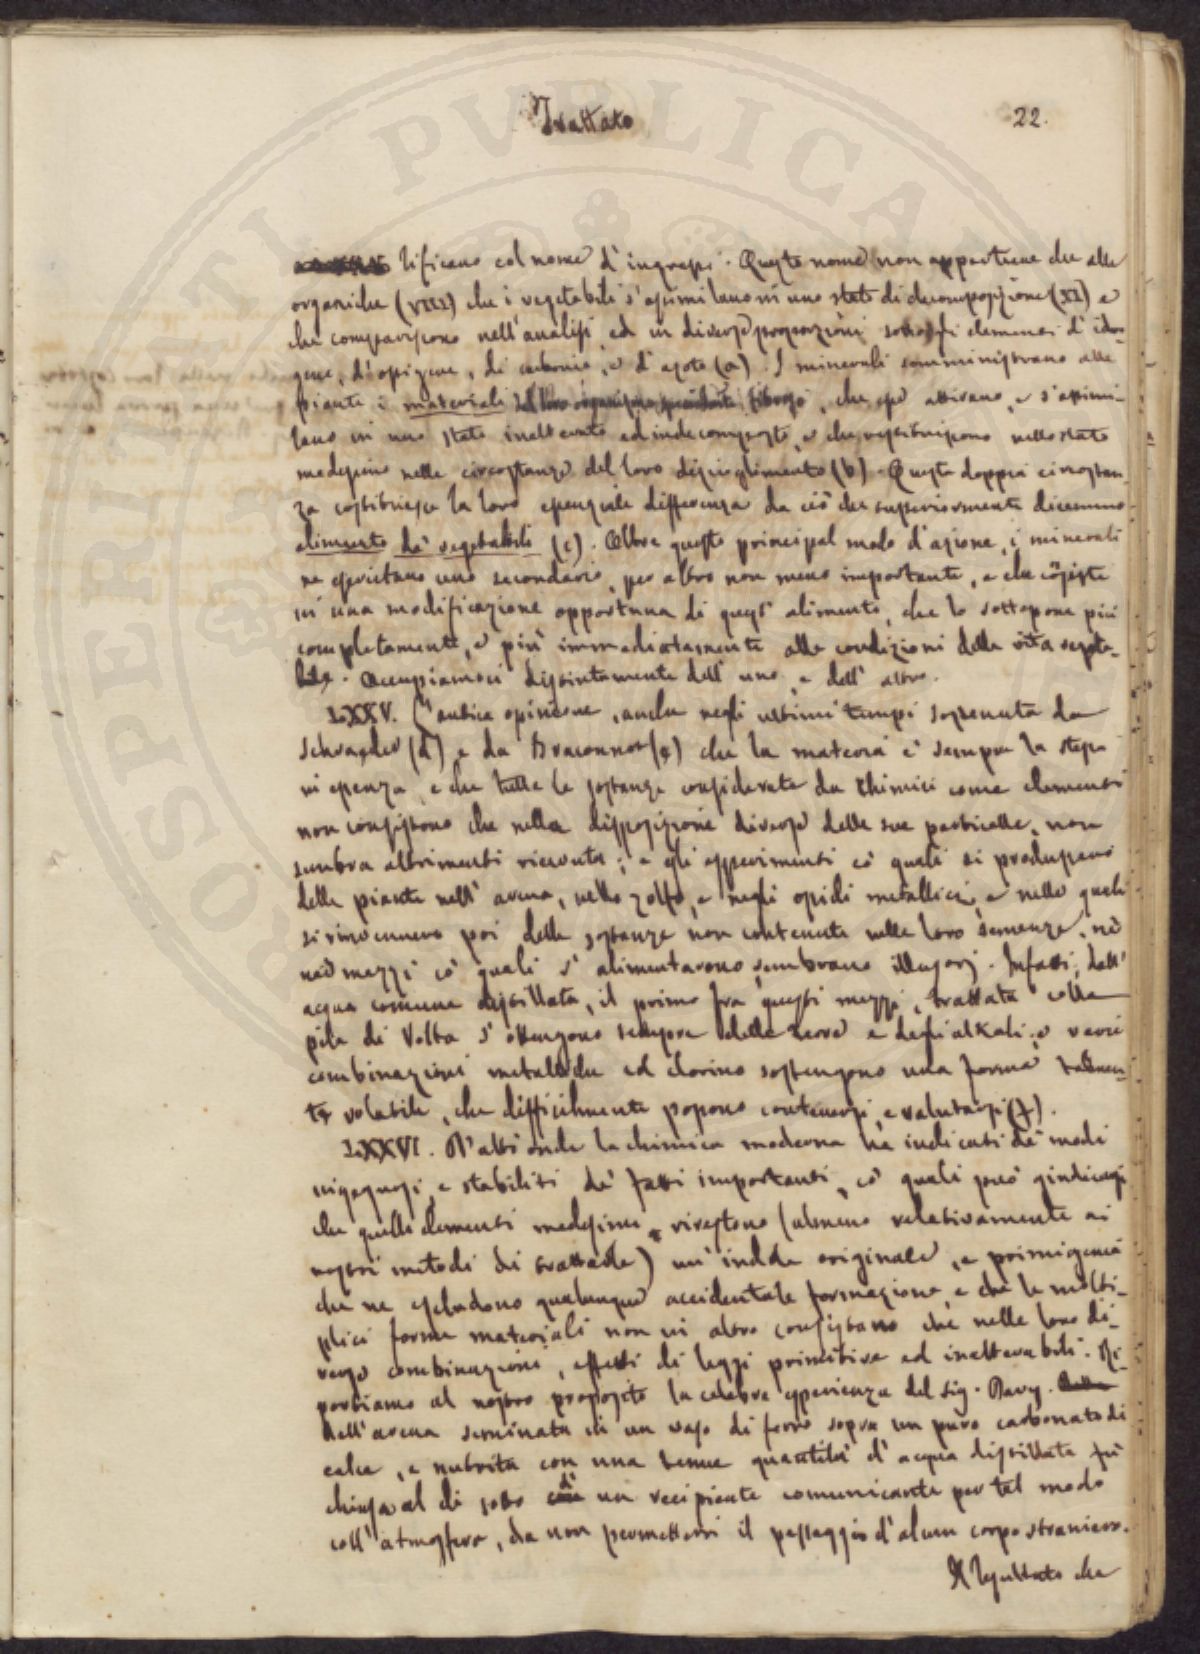 Trattato
22.
tificano col nome d'ingrassi. Questo nome non appartiene che alle
organiche (VIII) che i vegetabili s'assimilano in uno stato di decomposizione (XI) e
che compariscono nell'analisi, ed in diverse proporzioni sotto gli elementi d'idro-
gene, d'ossigene, di carbonio, e d'azoto (a). I minerali somministrano alle
piante i materiali del loro organismo fibroso, che esse attirano, e s'assimi-
lano in uno stato inalterato ed indecomposto, e che restituiscono nello stato
medesimo nelle circostanze del loro discioglimento (b). Questa doppia circostan-
za costituisce la loro essenziale differenza da ciò che superiormente dicemmo
alimento de' vegetabili (c). Oltre questo principal modo d'azione, i minerali
ne esercitano uno secondario, per altro non meno importante, e che consiste
in una modificazione opportuna di quest' alimento, che lo sottopone più
completamente, e più immediatamente alle condizioni della vita vegeta-
bile. Occupiamoci distintamente dell' uno, e dell' altro.
LXXV. L'antica opinione, anche negli ultimi tempi sostenuta da
Schrader (d) e da Braconnot (e) che la materia è sempre la stessa
in essenza, e che tutte le sostanze considerate da Chimici come elementi
non consistono che nella disposizione diversa delle sue particelle, non
sembra altrimenti ricevuta; e gli esperimenti co' quali si produssero
delle piante nell' arena, nello zolfo, e negli ossidi metallici, e nelle quali
si rinvennero poi delle sostanze non contenute nelle loro semenze, nè
nei mezzi co' quali s' alimentarono sembrano illusorj. Infatti, dall'
acqua comune distillata, il primo fra questi mezzi, trattata colla
pila di Volta s' ottengono sempre delle terre e degli alkali, e varie
combinazioni metalliche ed clorino sostengono una forma talmen-
te volatile, che difficilmente possono contenersi e valutarsi (f).
LXXVI. D'altronde la chimica moderna ha indicati de' modi
ingegnosi, e stabiliti de' fatti importanti, co' quali può giudicarsi
che quelli elementi medesimi rivestono (almeno relativamente ai
nostri metodi di trattarle) un' indole originale, e primigenia
che ne escludono qualunque accidentale formazione, e che le molti-
plici forme materiali non in altro consistano che nelle loro di-
verse combinazioni, effetti di leggi primitive ed inalterabili. Ri-
portiamo al nostro proposito la celebre esperienza del Sig. Davy.
Dell' avena seminata in un vaso di ferro sopra un puro carbonato di
calce, e nutrita con una tenue quantità d' acqua distillata fù
chiusa al di sotto di un recipiente comunicante per tal modo
coll' atmosfera, da non permettervi il passaggio d' alcun corpo straniero.
Il risultato che